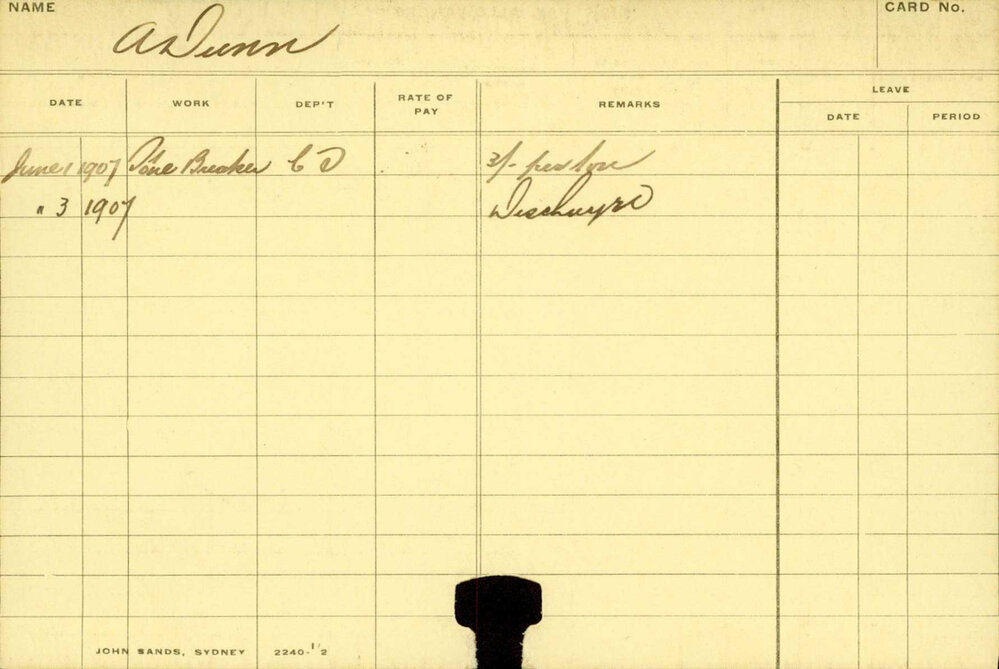 NAME
CARD No.
A Dunn
DATE WORK DEP'T RATE OF PAY REMARKS LEAVE
DATE PERIOD
June 1 1907 Stone Breaker C D 3/- per ton
" 3 1907 Discharged
JOHN SANDS, SYDNEY 2240-1/2